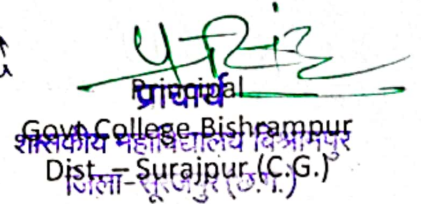 Principal
प्राचार्य
Govt College Bishrampur
शासकीय महाविद्यालय विश्रामपुर
Dist. – Surajpur (C.G.)
जिला-सूरजपुर (छ.ग.)